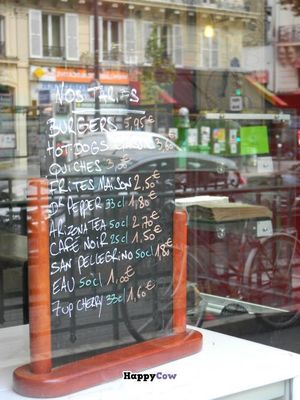 NOS TARIFS
BURGERS 5,95€
HOT-DOGS 3,80€
QUICHES 3,00€
FRITES MAISON 2,50€
Dr PEPPER 33cl 1,80€
ARIZONA TEA 50cl 2,70€
CAFÉ NOIR 25cl 1,50€
SAN PELLEGRINO 50cl 1,80€
EAU 50cl 1,00€
7 UP CHERRY 33cl 1,60€
HappyCow